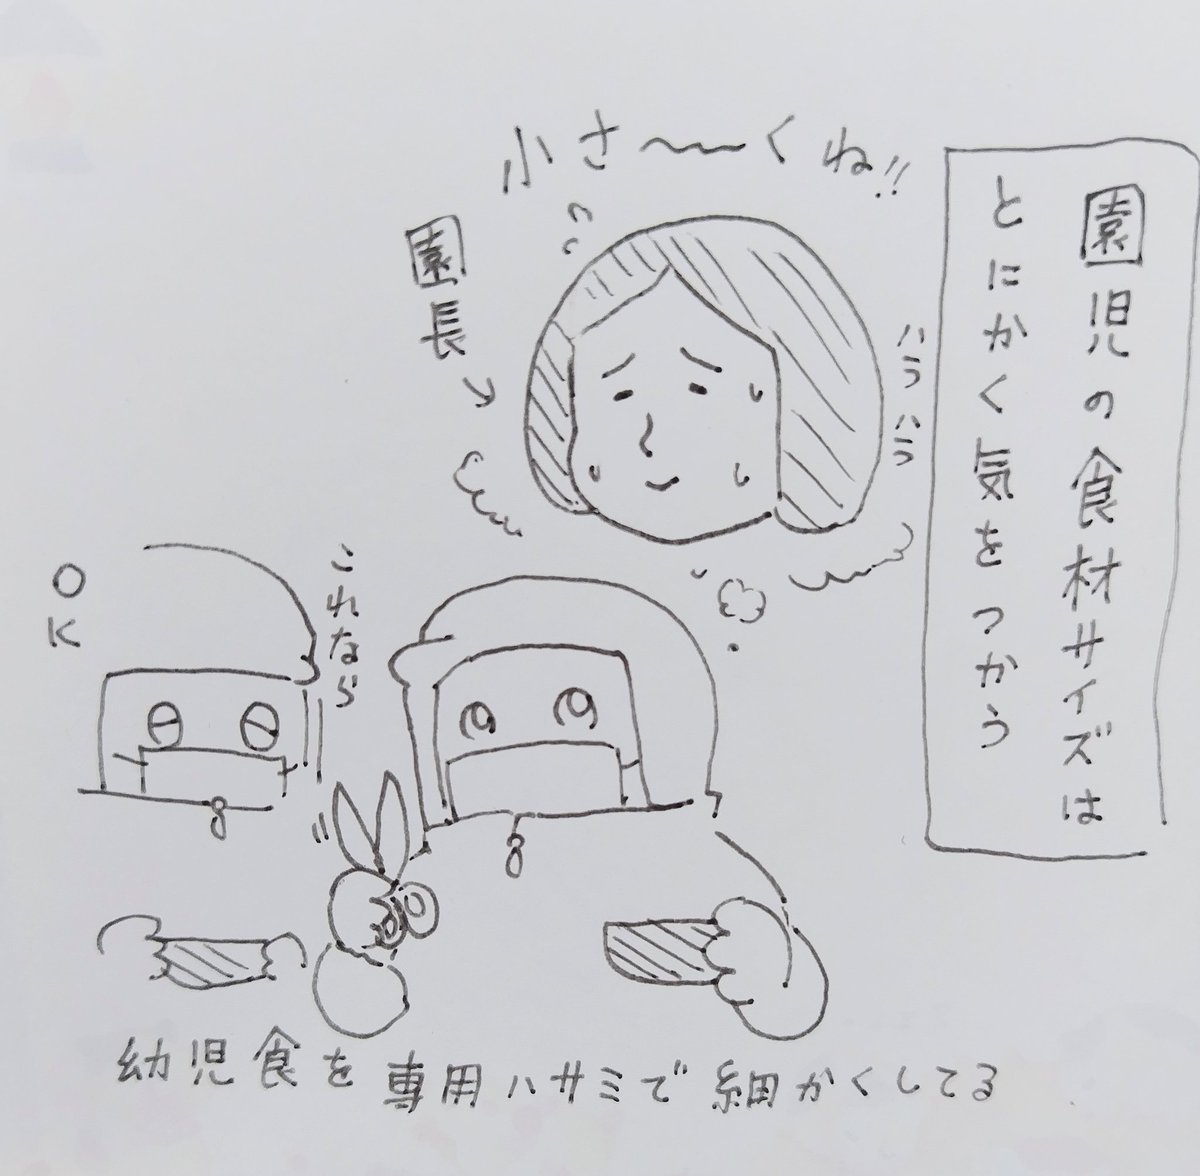 園児の食材サイズは
とにかく気をつかう
小さ〜〜くね!!
園長
ハラハラ
これなら
OK
幼児食を専用ハサミで細かくしてる